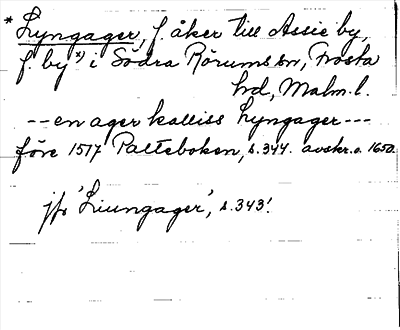 * Lyngager, f. åker till Assie by,
f. by *) i Södra Rörums sn, Frosta
hd, Malm. l.
-- en ager kalliss Lyngager ---
före 1517 Palteboken, s. 344. avskr. o. 1650.
jfr 'Liungager', s. 343!